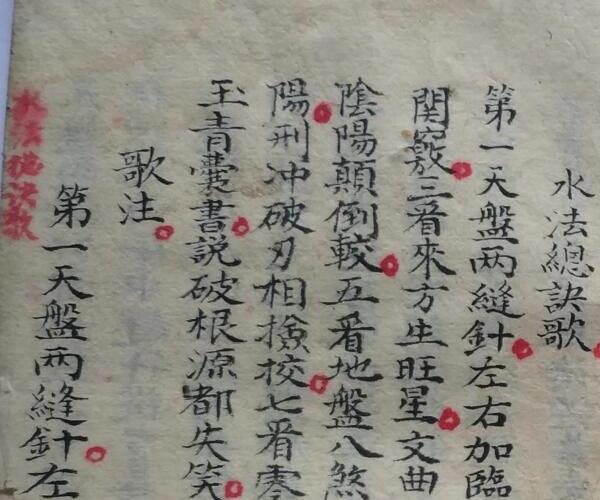 水法總訣歌
第一天盤兩縫針左右加臨
関竅三看來方生旺星文曲
陰陽顛倒較五看地盤八煞
陽刑冲破刃相撿校七看零
玉青囊書説破根源都失笑
歌注
第一天盤兩縫針左
水法總訣歌